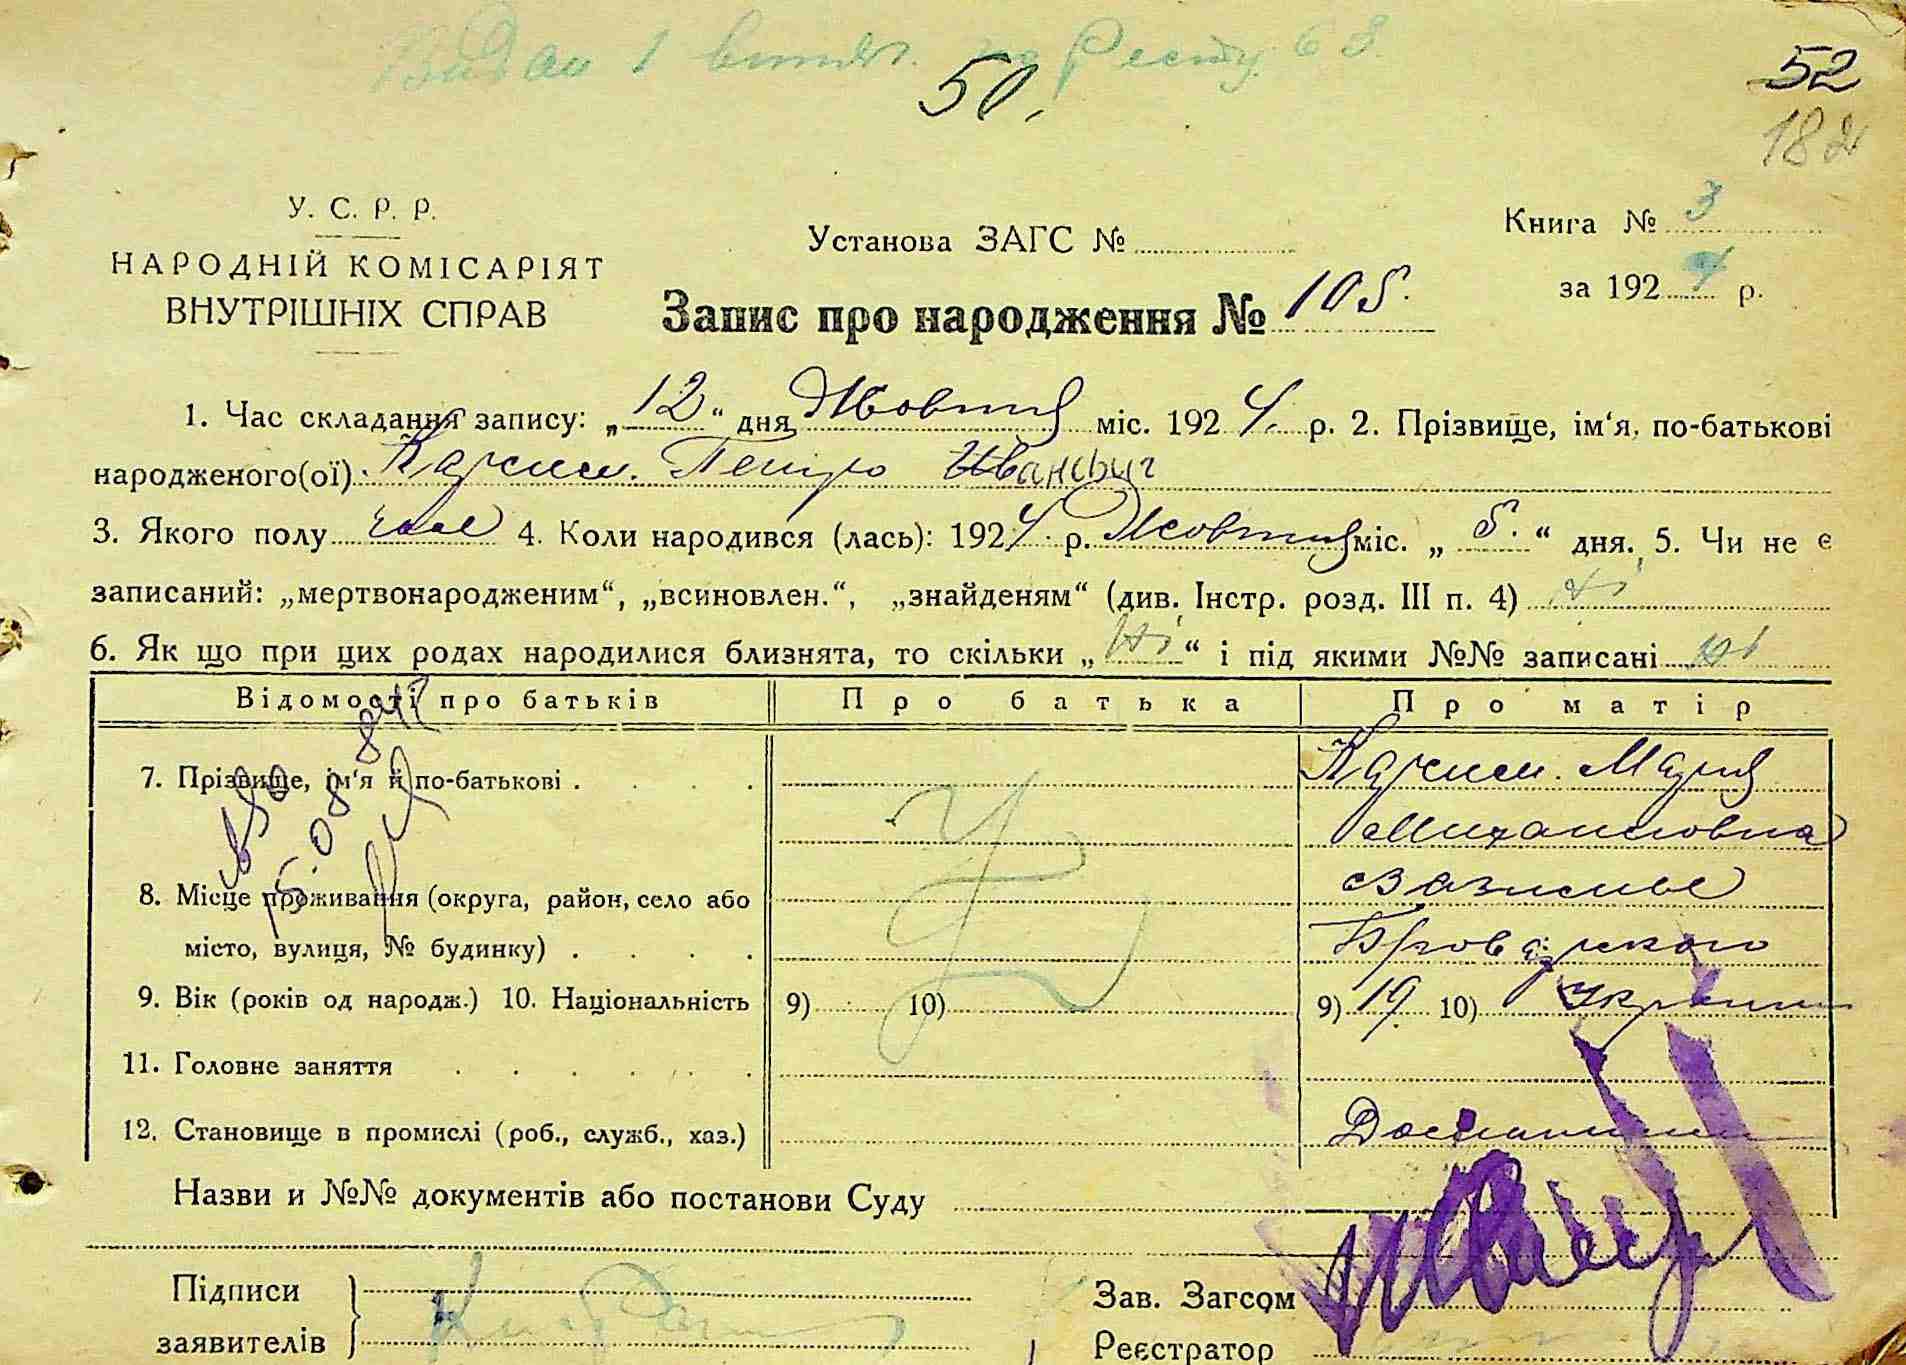 Видан 1 витяг. по Реєстру 63.
50.
52
182
У. С. Р. Р.
НАРОДНІЙ КОМІСАРІЯТ
ВНУТРІШНІХ СПРАВ
Установа ЗАГС №
Книга № 3
за 1924 р.
Запис про народження № 105.
1. Час складання запису: „12“ дня Жовтня міс. 1924. р. 2. Прізвище, ім‘я, по-батькові
народженого(ої) Петро Иванович
3. Якого полу чол 4. Коли народився (лась): 1924. р. Жовтня міс. „5.“ дня. 5. Чи не є
записаний: „мертвонародженим“, „всиновлен.“, „знайденям“ (див. Інстр. розд. III п. 4) Ні
6. Як що при цих родах народилися близнята, то скільки „Ні“ і під якими №№ записані ні
Відомості про батьків Про батька Про матір
7. Прізвище, ім‘я й по-батькові . . . . Мария
Михайловна
8. Місце проживання (округа, район, село або
Зазимье
місто, вулиця, № будинку) . . . . Броварского
9. Вік (років од народж.) 10. Національність 9) 10) 9) 19. 10) Украин
11. Головне заняття . . . . . .
12. Становище в промислі (роб., служб., хаз.)
Назви и №№ документів або постанови Суду
Підписи
заявителів
Зав. Загсом
Реєстратор